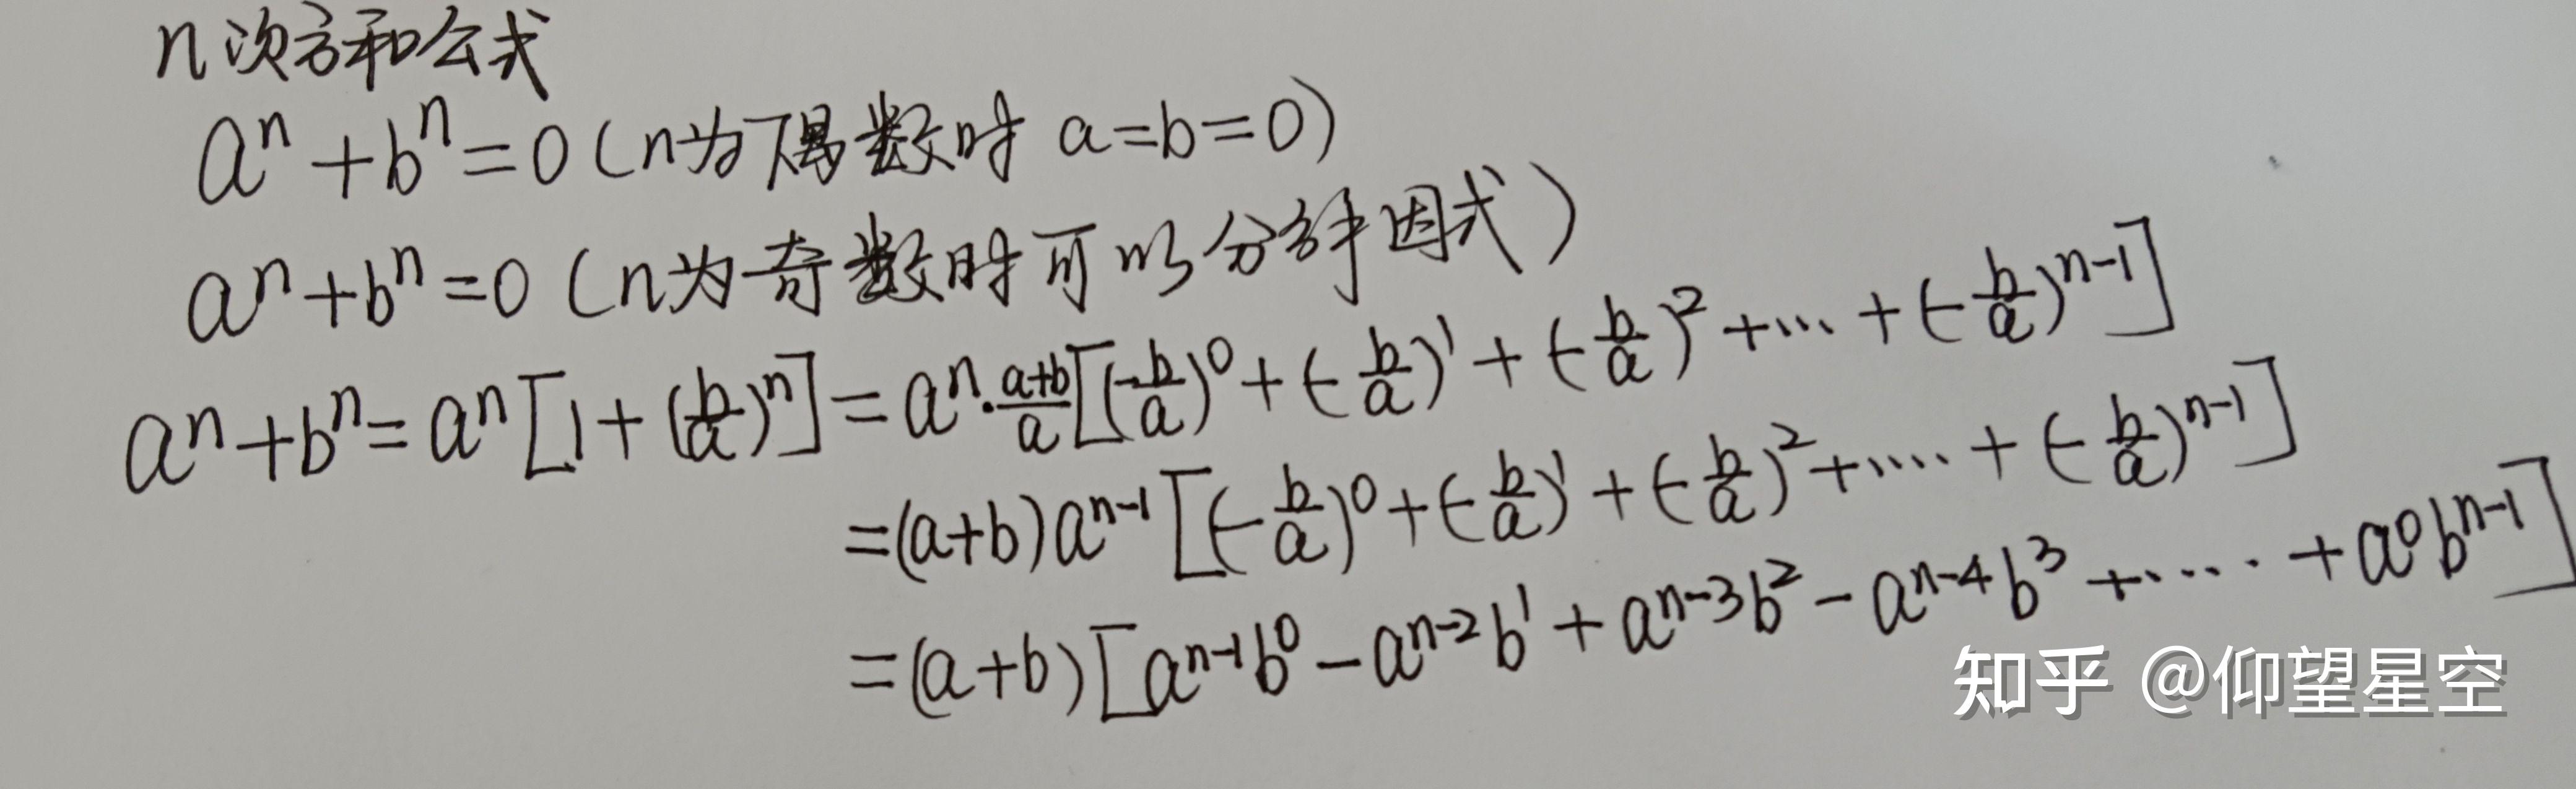 n次方和公式
aⁿ+bⁿ=0(n为偶数时 a=b=0)
aⁿ+bⁿ=0(n为奇数时可以分解因式)
aⁿ+bⁿ=aⁿ[1+(b/a)ⁿ]=aⁿ·(a+b)/a[(-b/a)⁰+(-b/a)¹+(-b/a)²+…+(-b/a)ⁿ⁻¹]
=(a+b)aⁿ⁻¹[(-b/a)⁰+(-b/a)¹+(-b/a)²+....+(-b/a)ⁿ⁻¹]
=(a+b)[aⁿ⁻¹b⁰-aⁿ⁻²b¹+aⁿ⁻³b²-aⁿ⁻⁴b³+.....+a⁰bⁿ⁻¹]
知乎 @仰望星空